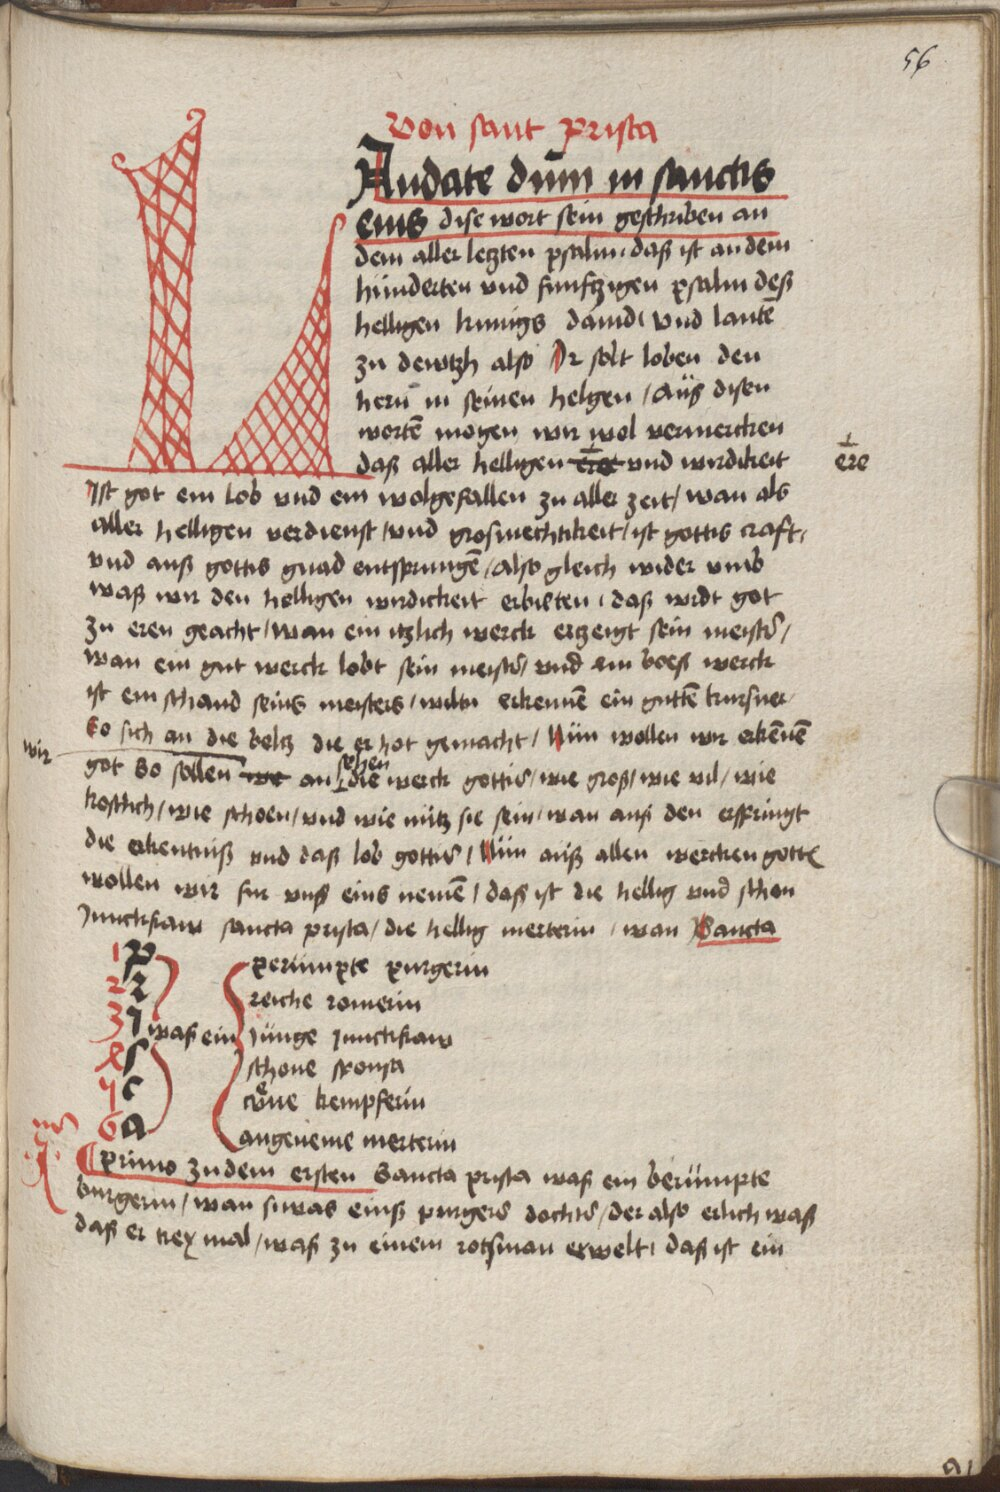 56
Von sant prisca
LAudate dnm̄ in sanctis
eius dise wort sein geschriben an
dem aller letzten psalm / daß ist an dem
hünderten vnd funftzigen psalm deß
helligen kunigs dauid / vnd lautē
zu dewtzh also Ir solt loben den
hern in seinen helgen / Auß disen
wortē mogen wir wol vermercken
daß aller helligen ere vnd wirdikeit
ere
Ist got ein lob vnd ein wolgefallen zu aller zeit / wan als
aller helligen verdienst / vnd grosmechtikeit / ist gottis craft /
vnd auß gottis gnad entsprungē / also gleich wider vmb
waß wir den helligen wirdickeit erbieten / daß wirdt got
zu eren geacht / wan ein itzlich werck ertzeigt sein meister /
wan ein gut werck lobt sein meister / vnd ein boeß werck
ist ein schand seins meisters / wiltu erkennē ein guttē kursner /
So sich an die beltz die er hot gemacht / Nün wollen wir erkēnē
wir
got so sollen we an sehen die werck gottis / wie groß / wie vil / wie
kostlich / wie schoen / vnd wie nütz sie sein / wan auß den erspringt
die erkentniß vnd daß lob gottis / Nün auß allen wercken gottes
wollen wir fur vnß eins nemē / daß ist die hellig vnd schon
Junckfraw sancta prisca / die hellig merterin / wan Sancta
1 P perümpte purgerin
2 r reiche romerin
3 J waß ein Jünge Junckfraw
4 s schone sponsa
5 c cone kempferin
6 a angeneme merterin
Primo zu dem ersten Sancta prisca waß ein berümpte
burgerin / wan si was einß purgers dochter / der also erlich waß
daß er trey mal / waß zu einem rotsman erwelt / daß ist ein